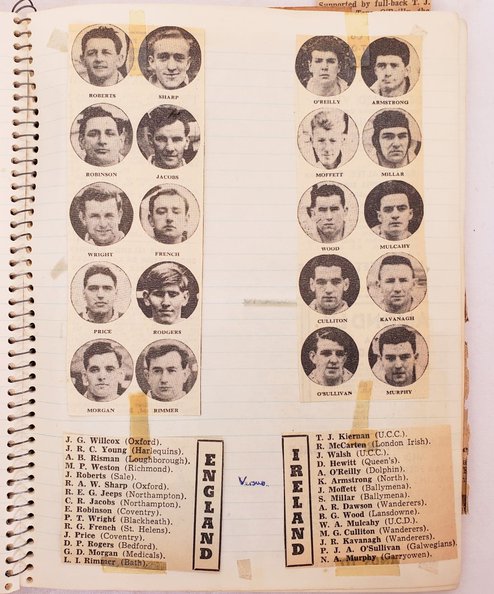 Supported by full-back T. J.
ROBERTS SHARP
ROBINSON JACOBS
WRIGHT FRENCH
PRICE RODGERS
MORGAN RIMMER
O'REILLY ARMSTRONG
MOFFETT MILLAR
WOOD MULCAHY
CULLITON KAVANAGH
O'SULLIVAN MURPHY
J. G. Willcox (Oxford).
J. R. C. Young (Harlequins).
A. B. Risman (Loughborough).
M. P. Weston (Richmond).
J. Roberts (Sale).
R. A. W. Sharp (Oxford).
R. E. G. Jeeps (Northampton).
C. R. Jacobs (Northampton).
E. Robinson (Coventry).
P. T. Wright (Blackheath).
R. G. French (St. Helens).
J. Price (Coventry).
D. P. Rogers (Bedford).
G. D. Morgan (Medicals).
L. I. Rimmer (Bath).
ENGLAND
Versus
IRELAND
T. J. Kiernan (U.C.C.).
R. McCarten (London Irish).
J. Walsh (U.C.C.).
D. Hewitt (Queen's).
A. O'Reilly (Dolphin).
K. Armstrong (North).
J. Moffett (Ballymena).
S. Millar (Ballymena).
A. R. Dawson (Wanderers).
B. G. Wood (Lansdowne).
W. A. Mulcahy (U.C.D.).
M. G. Culliton (Wanderers).
J. R. Kavanagh (Wanderers).
P. J. A. O'Sullivan (Galwegians).
N. A. Murphy (Garryowen).